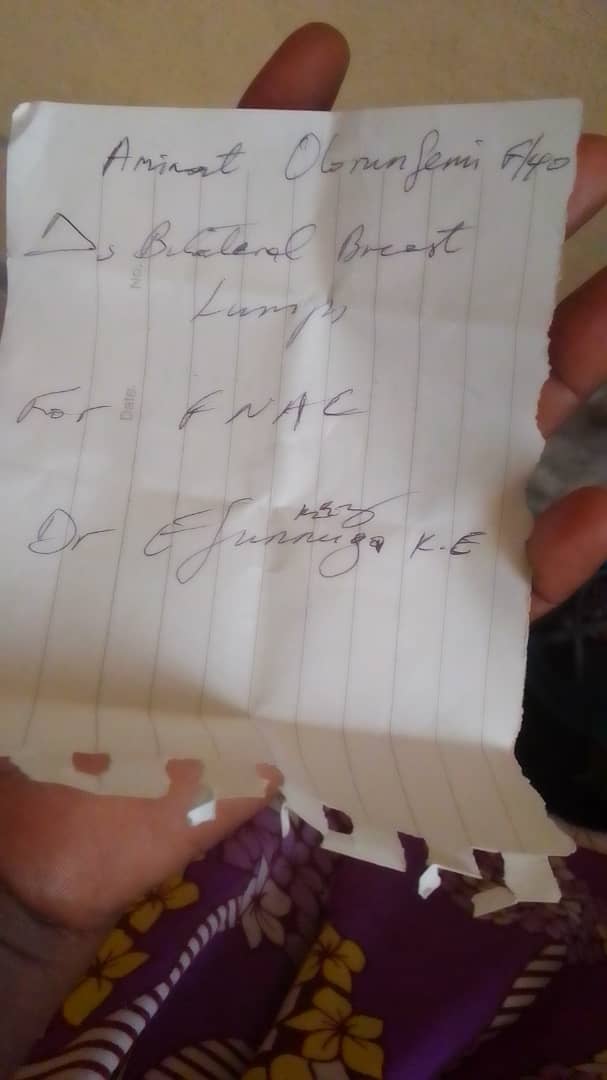 Aminat Olorunfemi F/40
Δs Bilateral Breast
Lumps
For FNAC
Dr Efunnuga K.E
No.
Date.